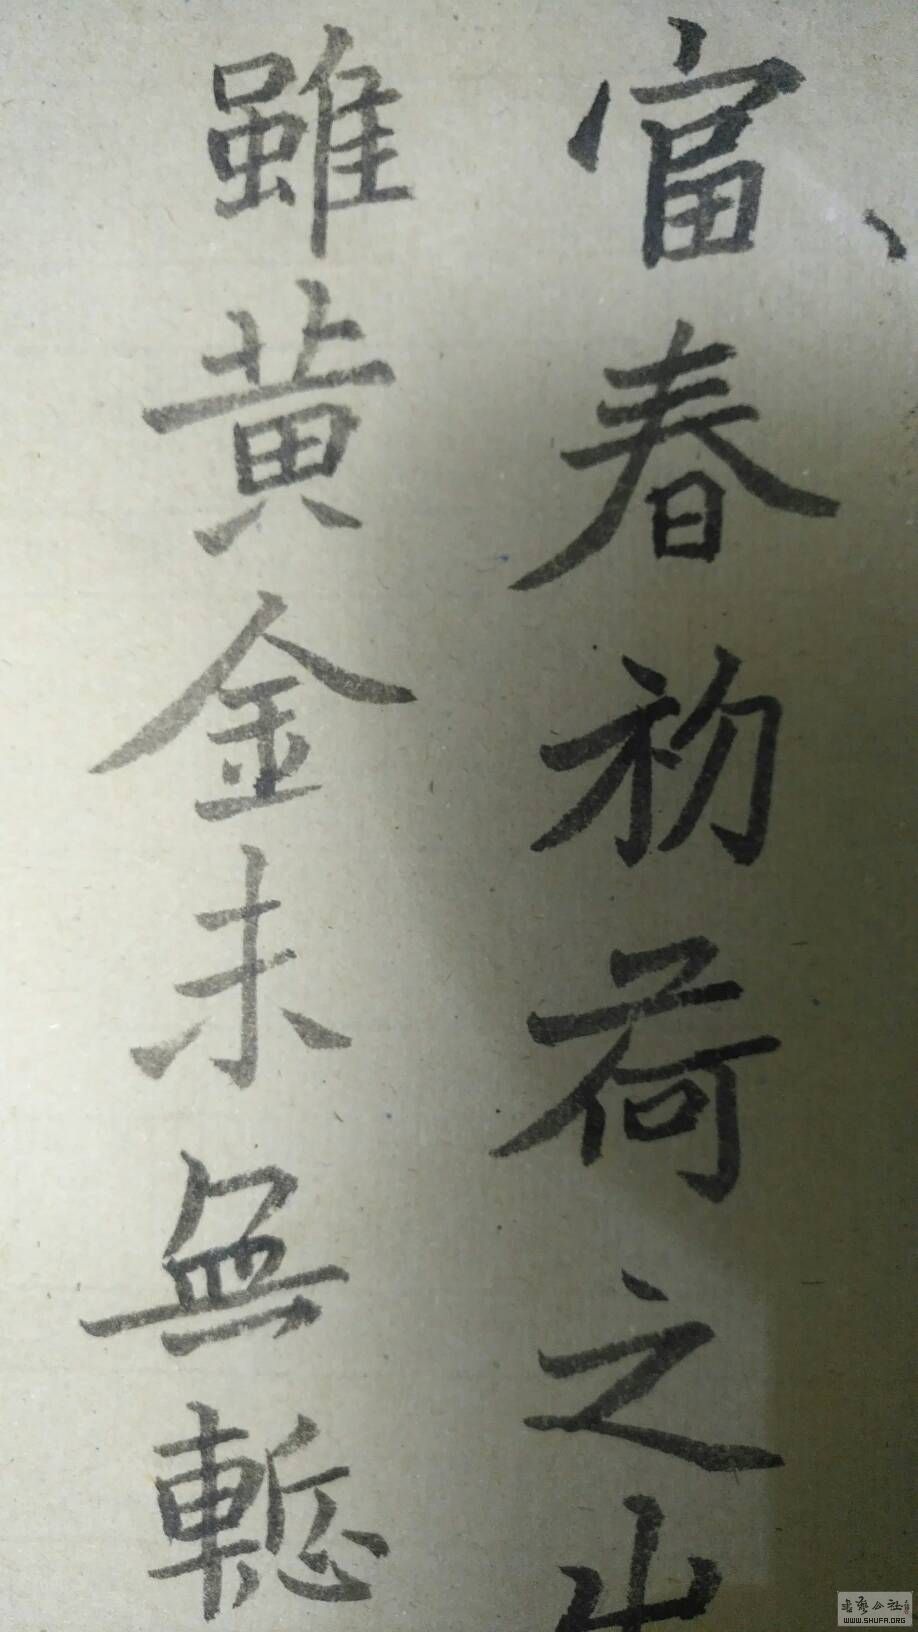 富春初荷之出
雖黃金未無慙
書藝公社
WWW.SHUFA.ORG